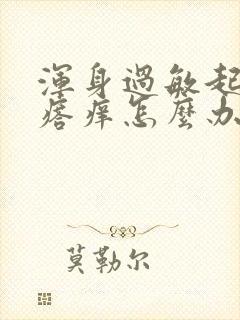 渾身過敏起
瘩癢怎麼办
莫勒尔